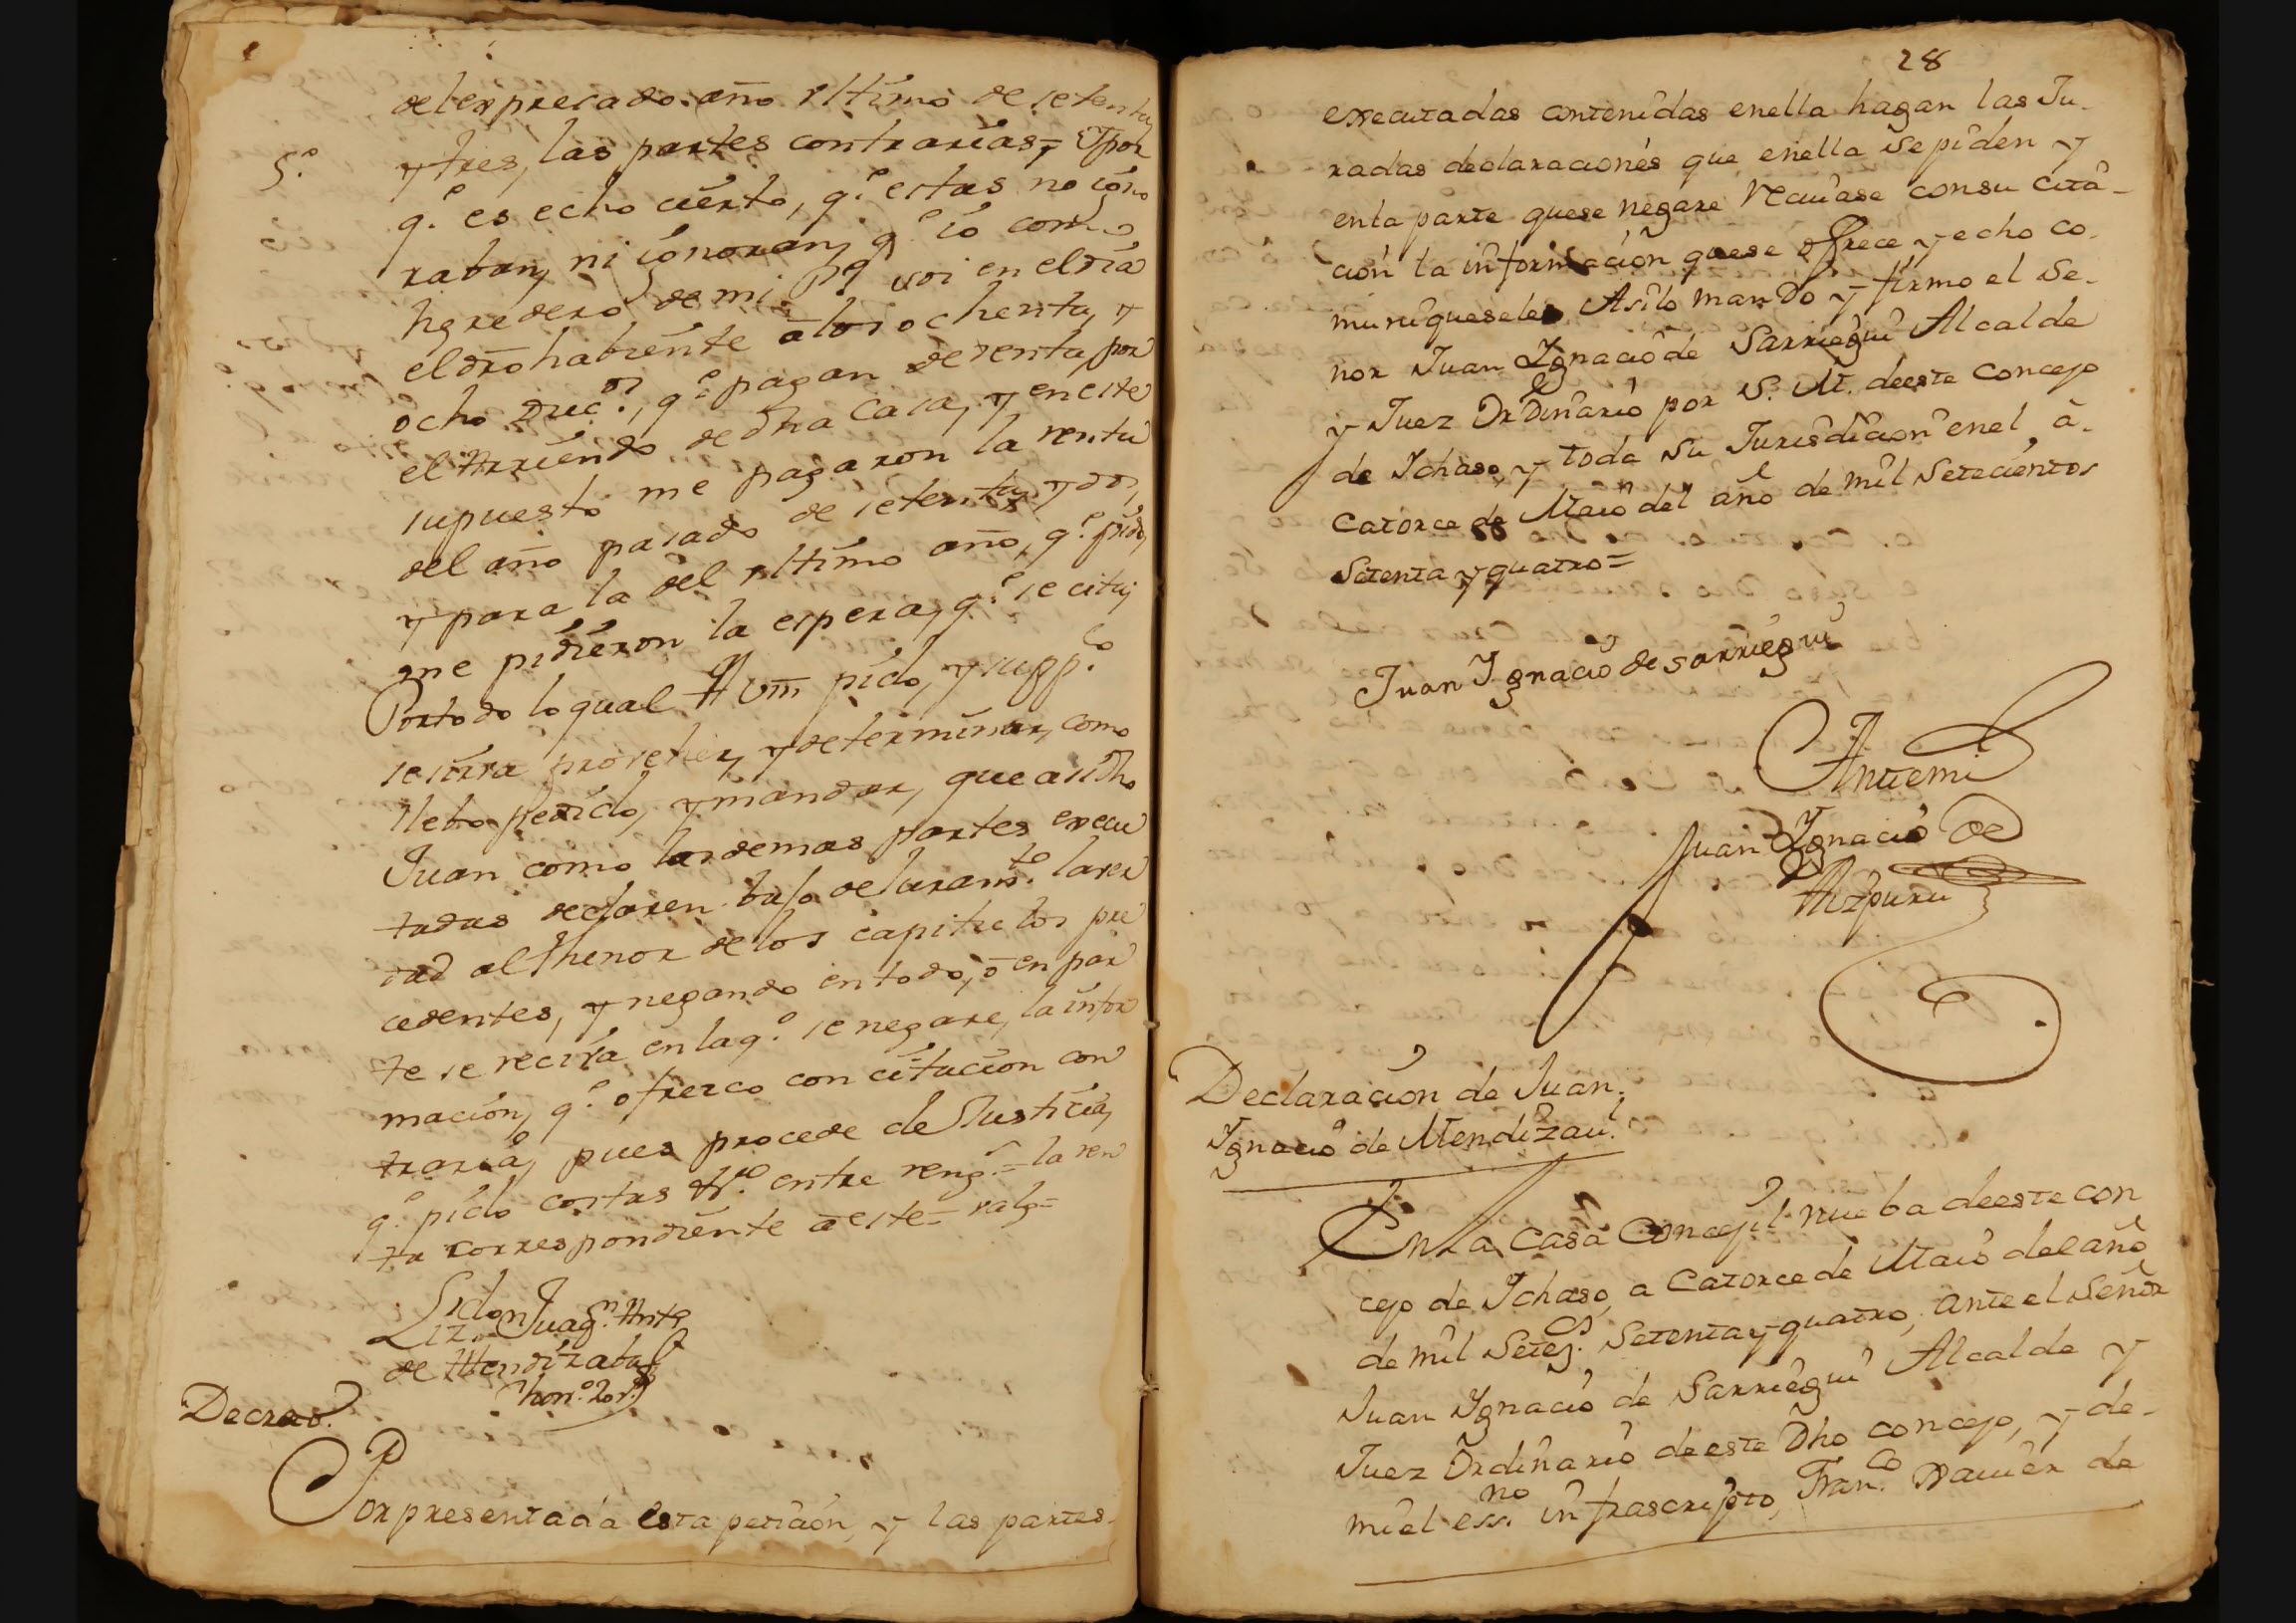 del expresado año ultimo de setenta,
5.º
y tres, las partes contrarias = Y por
q.e es echo cierto, q.e estas no igno
raban, ni ignoran, q.e io como
heredero de mi P.e soi en el dia
el dro habiente a los ochenta, y
ocho Duc.os, q.e pagan de renta, por
el Arriendo de dha Casa, y en este
supuesto me pagaron la renta
del año pasado de setenta, y dos,
y para la del ultimo año, q.e pido,
me pidieron la espera, q.e se cita,
Por todo lo qual A Vm pido, y supp.co
se sirva proveher, y determinar, como
llebo pedido, y mandar, que asi dho
Juan como las demas partes execu
tadas declaren bajo de Juram.to la ver
dad al thenor de los capitulos pre
cedentes, y negando en todo, ó en par
te se reciva en la q.e se negare, la infor
macion, q.e ofrezco con citacion con
traria, pues procede de Justicia,
q.e pido costas &.a entre reng.s = la ren
ta correspondiente a este = valg =
Lizdo. don Juaq.n Ant.o
de Mendizabal
Decreto.
Por presentada esta peticion, y las partes
28
executadas contenidas en ella hagan las Ju-
radas declaraciones que en ella se piden y
en la parte que se negare Recivase con su cita-
cion la informacion que se ofrece y echo co-
muniqueseles Asi lo mando y firmo el Se-
ñor Juan Ygnacio de Sarriegui Alcalde
y Juez Ordinario por S. M. de este Concejo
de Ichaso, y toda su Jurisdicion en el, á
Catorce de Maio del año de mil Setecientos
Setenta y quatro =
Juan Ygnacio de Sarriegui
Ante mi
Juan Ygnacio de
Aizpuru
Declaracion de Juan
Ygnacio de Mendizaul.
En la Casa Concejil nueba de este con
cejo de Ichaso, a Catorce de Maio del año
de mil Seteg.os Setenta y quatro, ante el Señor
Juan Ygnacio de Sarriegui Alcalde y
Juez Ordinario de este Dho concejo, y de
mi el ess.no infrascripto, Fran.co Xavier de